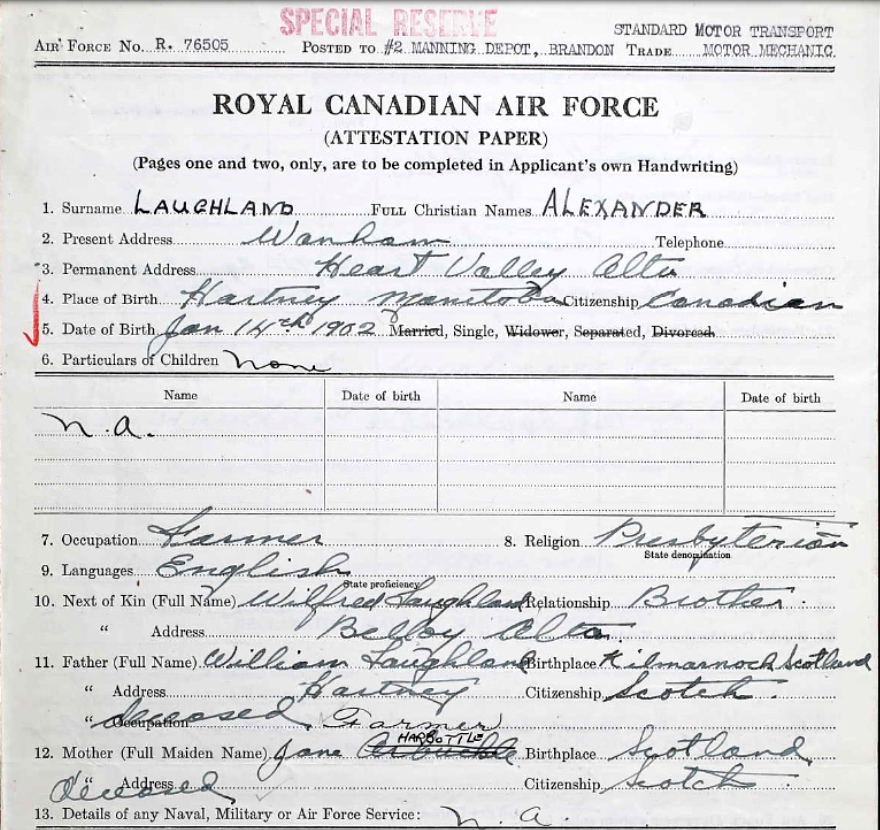 SPECIAL RESERVE
STANDARD MOTOR TRANSPORT
AIR FORCE NO. R. 76505 POSTED TO #2 MANNING DEPOT, BRANDON TRADE MOTOR MECHANIC.
ROYAL CANADIAN AIR FORCE
(ATTESTATION PAPER)
(Pages one and two, only, are to be completed in Applicant's own Handwriting)
1. Surname LAUGHLAND FULL Christian Names ALEXANDER
2. Present Address Wanham Telephone
3. Permanent Address Heart Valley Alta
4. Place of Birth Hartney Manitoba Citizenship Canadian
5. Date of Birth Jan 14th 1902 Married, Single, Widower, Separated, Divorced
6. Particulars of Children none
Name Date of birth Name Date of birth
n.a.
7. Occupation Farmer 8. Religion Presbyterian
State denomination
9. Languages English
State proficiency
10. Next of Kin (Full Name) Wilfred Laughland Relationship Brother.
" Address Belloy Alta.
11. Father (Full Name) William Laughland Birthplace Kilmarnock Scotland
" Address Hartney Citizenship Scotch.
" Occupation deceased. Farmer
HARBOTTLE
12. Mother (Full Maiden Name) Jane Arbuckle Birthplace Scotland
" Address deceased Citizenship Scotch
13. Details of any Naval, Military or Air Force Service: n.a.